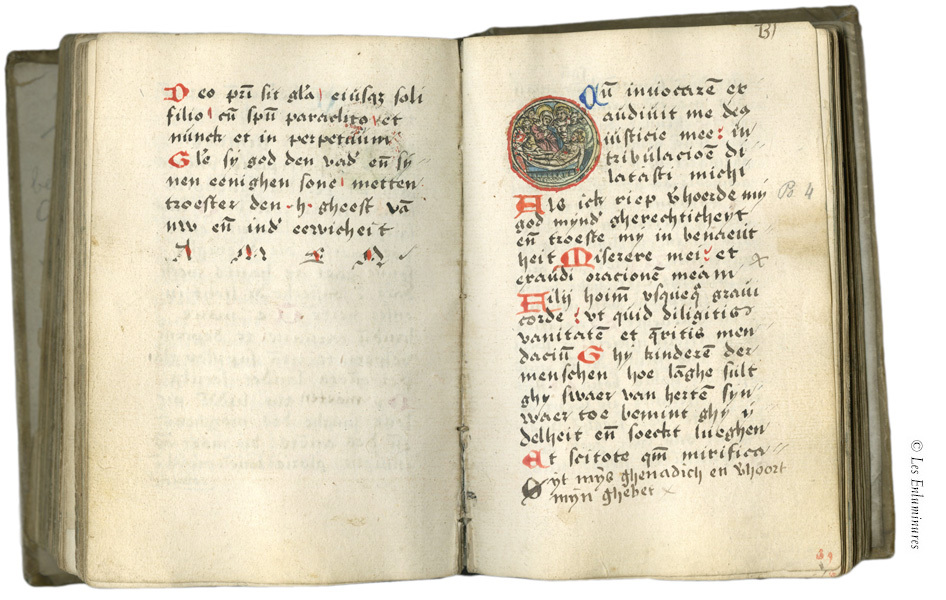 Deo pr̄i sit gl'a eiusq3 soli
filio cū sp̄u paraclito et
nunck et in perpetuum
Gl'e sy god den vad' eñ sy
nen eenighen sone metten
troester den h gheest vā
nw eñ ind' eewicheit
A M E N
Cū invocarem et
audiuit me deꝰ
iusticie mee in
tribulacioē di
latasti michi
Als ick riep v'hoerde my
god mynd' gherechticheyt
eñ troeste my in benaeut
heit Miserere mei et
exaudi oracionē meam
Filij hoim̄ vsqueq̄ graui
corde vt quid diligitis
vanitatē et q̄ritis men
daciū Ghy kinderē der
menschen hoe lāghe sult
ghy swaer van hertē syn
waer toe bemint ghy y
delheit eñ soeckt lueghen
Et scitote qm̄ mirifica
Syt mijs ghenadich en v'hoort
mijn ghebet x
Ps 4
© Les Enluminures